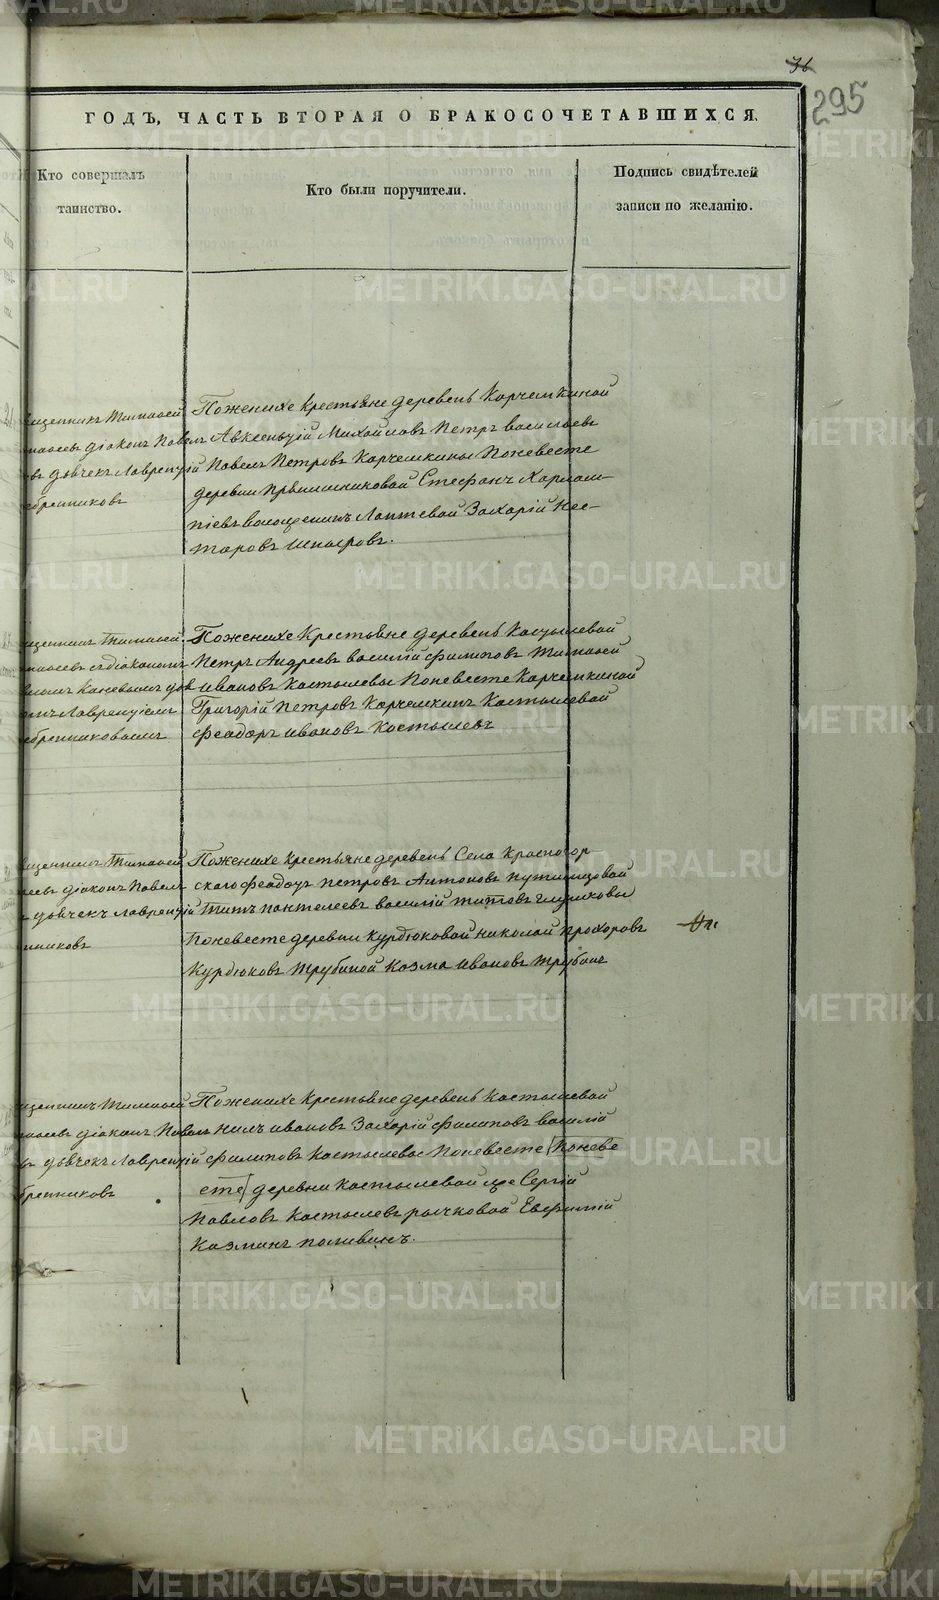 36
295
ГОДЪ, ЧАСТЬ ВТОРАЯ О БРАКОСОЧЕТАВШИХСЯ.
Кто совершалъ
таинство.
Кто были поручители.
Подпись свидѣтелей
записи по желанію.
щенникъ Тимофей
діаконъ Павелъ
дьячекъ Лаврентій
ебренниковъ
Поженихе крестьяне деревень Корчемкиной
Авксентій Михайловъ Петръ васильевъ
Павелъ Петровъ Корчемкины Поневесте
деревни Стефанъ Харламп-
піевъ Лаптевой Захарій Нес-
торовъ
щенникъ Тимофей
съдіакономъ
Лаврентіемъ
ебренниковымъ
Поженихе Крестьяне деревень Костылевой
Петръ Андреевъ василій филиповъ Тимофей
ивановъ Костылевы Поневесте Корчемкиной
Григорій Петровъ Корчемкинъ Костылевой
феадоръ ивановъ Костылевъ
щенникъ Тимофей
діаконъ Павелъ
дьячекъ Лаврентій
нниковъ
Поженихе крестьяне деревень Села Красногор
скаго феадоръ петровъ Антоновъ
Титъ пантелеевъ василій титовъ глушковы
Поневесте деревни Курдюковой николай прохоровъ
Курдюковъ трубиной Козма ивановъ трубинъ
щенникъ Тимофей
діаконъ Павелъ
дьячекъ Лаврентій
бренниковъ
Поженихе Крестьяне деревень Костылевой
нилъ ивановъ Захарій филиповъ василій
филиповъ Костылевы Поневесте (Поневе
сте) деревни Костылевой Сергій
Павловъ Костылевъ рычковой Евфимій
Казминъ поливинъ.
METRIKI.GASO-URAL.RU